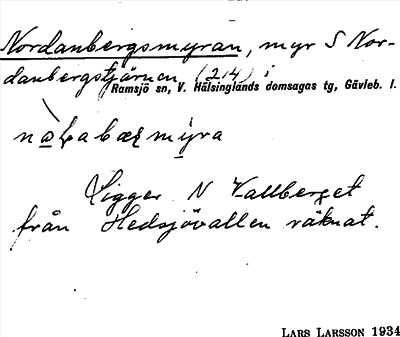 Nordanbergsmyran, myr S Nor-
danbergstjärnen (214) i
Ramsjö sn, V. Hälsinglands domsagas tg, Gävleb. l.
Ligger N Vallberget
från Hedsjövallen räknat.
LARS LARSSON 1934